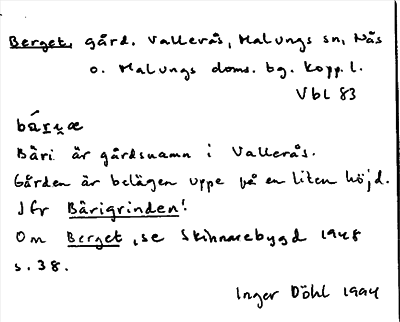 Berget, gård. Vallerås, Malungs sn, Nås
o. Malungs doms. bg. Kopp. l.
Vbl 83
Bäri är gårdsnamn i Vallerås.
Gården är belägen uppe på en liten höjd.
Jfr Bärigrinden!
Om Berget, se Skinnarebygd 1948
s. 38.
Inger Döhl 1994